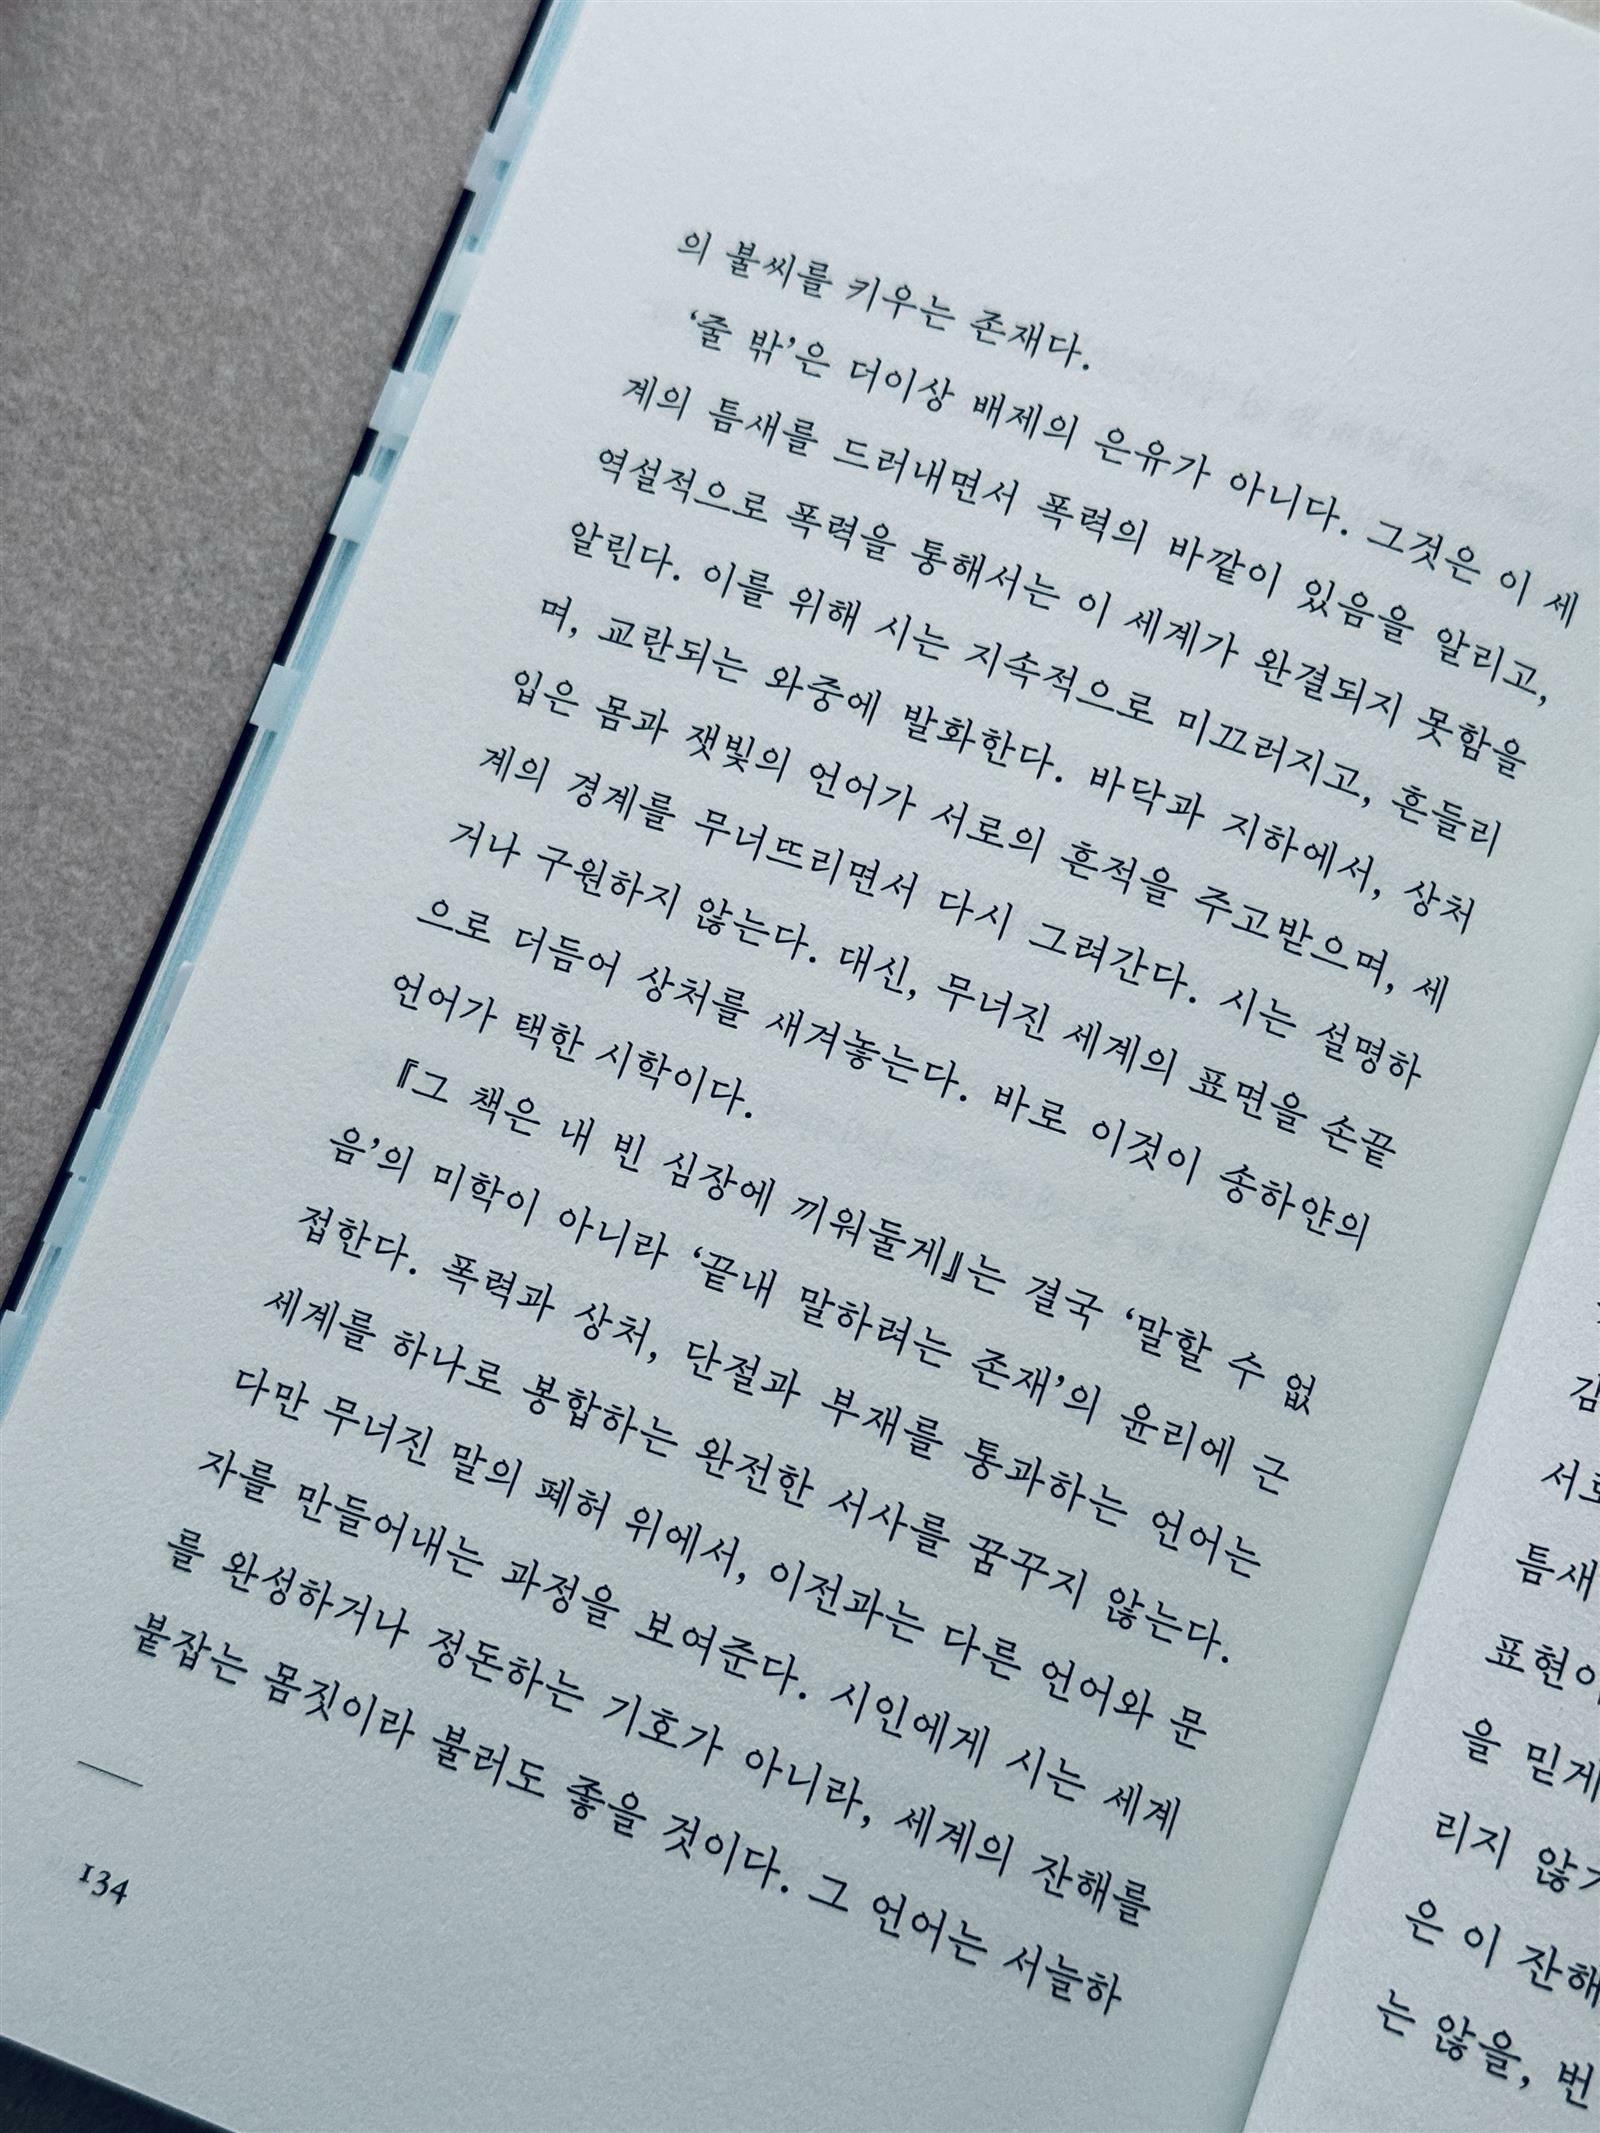 의 불씨를 키우는 존재다.
‘줄 밖’은 더이상 배제의 은유가 아니다. 그것은 이 세
계의 틈새를 드러내면서 폭력의 바깥이 있음을 알리고,
역설적으로 폭력을 통해서는 이 세계가 완결되지 못함을
알린다. 이를 위해 시는 지속적으로 미끄러지고, 흔들리
며, 교란되는 와중에 발화한다. 바닥과 지하에서, 상처
입은 몸과 잿빛의 언어가 서로의 흔적을 주고받으며, 세
계의 경계를 무너뜨리면서 다시 그려간다. 시는 설명하
거나 구원하지 않는다. 대신, 무너진 세계의 표면을 손끝
으로 더듬어 상처를 새겨놓는다. 바로 이것이 송하얀의
언어가 택한 시학이다.
『그 책은 내 빈 심장에 끼워둘게』는 결국 ‘말할 수 없
음’의 미학이 아니라 ‘끝내 말하려는 존재’의 윤리에 근
접한다. 폭력과 상처, 단절과 부재를 통과하는 언어는
세계를 하나로 봉합하는 완전한 서사를 꿈꾸지 않는다.
다만 무너진 말의 폐허 위에서, 이전과는 다른 언어와 문
자를 만들어내는 과정을 보여준다. 시인에게 시는 세계
를 완성하거나 정돈하는 기호가 아니라, 세계의 잔해를
붙잡는 몸짓이라 불러도 좋을 것이다. 그 언어는 서늘하
134
서로
틈새
표현이
을 믿게
리지 않
은 이 잔해
는 않을, 번